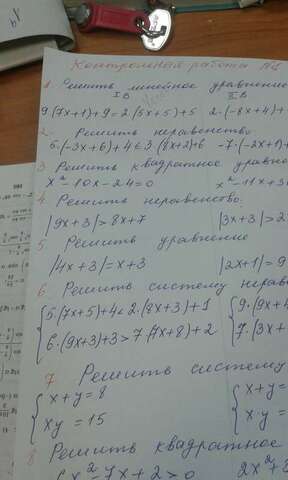 Контрольная работа №1
1. Решить линейное уравнение
I В II В
9·(7x+1)+9=2·(5x+5)+5 2·(-8x+4)+
2. Решить неравенство
5·(-3x+6)+4<3·(8x+2)+6 -7·(-2x+1)+
3 Решить квадратное уравне
x²-10x-24=0 x²-11x+3
4 Решить неравенство.
|9x+3|>8x+7 |3x+3|>2
5 Решить уравнение
|4x+3|=x+3 |2x+1|=9
6 Решить систему нерав
5·(7x+5)+4<2·(8x+3)+1 9·(9x+4
6·(9x+3)+3>7·(7x+8)+2 7·(3x+
7 Решить систему
x+y=8 x+y=
xy=15 x·y=
8 Решить квадратное
x²-7x+2>0 2x²+3